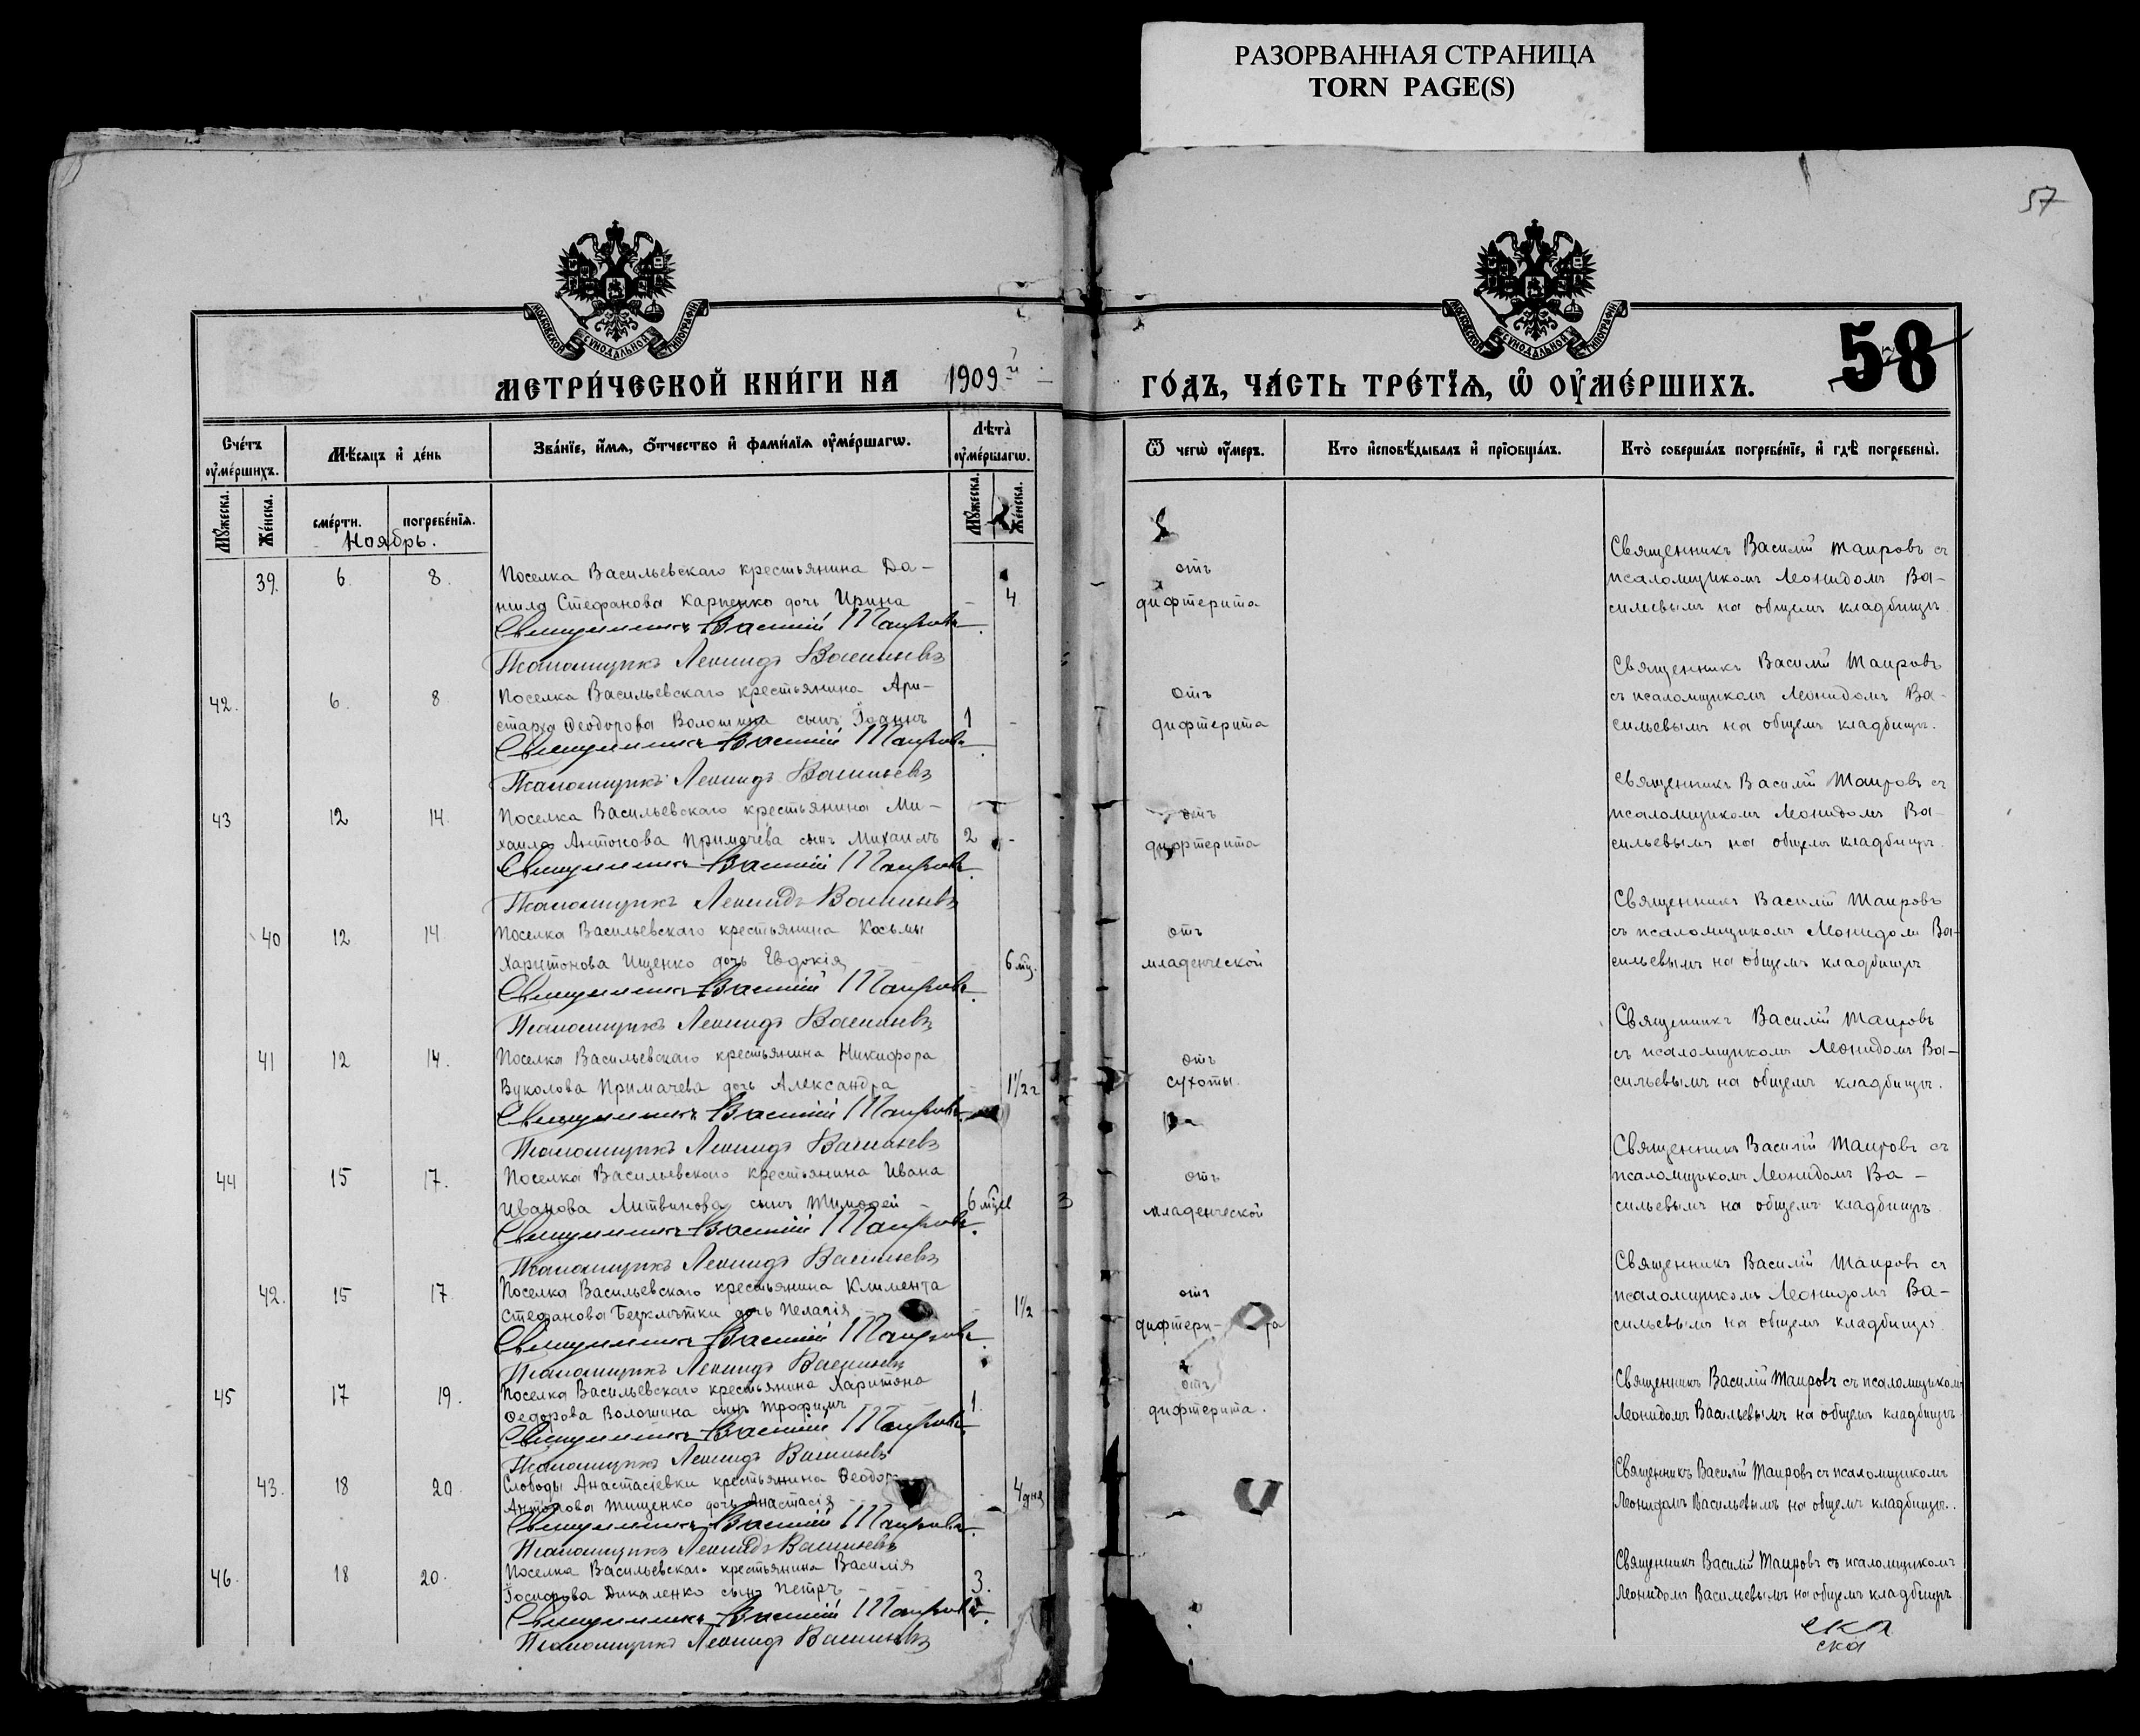 РАЗОРВАННАЯ СТРАНИЦА
TORN PAGE(S)
57
МОСКОВСКОЙ СУНОДАЛЬНОЙ ТИПОГРАФІИ
МОСКОВСКОЙ СУНОДАЛЬНОЙ ТИПОГРАФІИ
58
МЕТРИ́ЧЕСКОЙ КНИ́ГИ НА 1909й
ГО́ДЪ, ЧА́СТЬ ТРЕ́ТІѦ, Ѡ ОУ҆МЕ́РШИХЪ.
Сче́тъ оу҆ме́ршихъ.
Мѣ́сяцъ и҆ де́нь
Зва́нїе, и҆́мя, ѻ҆́тчество и҆ фами́лїя оу҆ме́ршагѡ.
Лѣта̀ оу҆ме́ршагѡ.
Ѿ чегѡ̀ оу҆́меръ.
Кто̀ и҆сповѣ́дывалъ и҆ прїѻбща́лъ.
Кто̀ соверша́лъ погребе́нїе, и҆ гдѣ̀ погребены̀.
Мꙋ́жеска.
Же́нска.
сме́рти.
погребе́нїя.
Мꙋ́жеска.
Же́нска.
Ноябрь.
39. 6. 8. Поселка Васильевскаго крестьянина Да-
нила Стефанова Карпенко дочь Ирина – 4
Священникъ Василій Таировъ.
Псаломщикъ Леонидъ Васильевъ
отъ
дифтерита
Священникъ Василій Таировъ съ
псаломщикомъ Леонидомъ Ва-
сильевымъ на общемъ кладбищѣ.
42. 6. 8 Поселка Васильевскаго крестьянина Ари-
старха Ѳеодорова Волошина сынъ Іоаннъ 1 -
Священникъ Василій Таировъ.
Псаломщикъ Леонидъ Васильевъ
отъ
дифтерита
Священникъ Василій Таировъ
съ псаломщикомъ Леонидомъ Ва-
сильевымъ на общемъ кладбищѣ.
43 12 14. Поселка Васильевскаго крестьянина Ми-
хаила Антонова Примачева сынъ Михаилъ 2 -
Священникъ Василій Таировъ.
Псаломщикъ Леонидъ Васильевъ
отъ
дифтерита
Священникъ Василій Таировъ съ
псаломщикомъ Леонидомъ Ва-
сильевымъ на общемъ кладбищѣ.
40 12 14 Поселка Васильевскаго крестьянина Косьмы
Харитонова Ищенко дочь Евдокія – 6 мц.
Священникъ Василій Таировъ.
Псаломщикъ Леонидъ Васильевъ
отъ
младенческой
Священникъ Василій Таировъ
съ псаломщикомъ Леонидомъ Ва-
сильевымъ на общемъ кладбищѣ
41 12 14. Поселка Васильевскаго крестьянина Никифора
Вуколова Примачева дочь Александра – 1½ г
Священникъ Василій Таировъ.
Псаломщикъ Леонидъ Васильевъ
отъ
сухоты.
Священникъ Василій Таировъ
съ псаломщикомъ Леонидомъ Ва-
сильевымъ на общемъ кладбищѣ.
44 15 17. Поселка Васильевскаго крестьянина Ивана
Иванова Литвинова сынъ Тимофей – 6 мцев
Священникъ Василій Таировъ.
Псаломщикъ Леонидъ Васильевъ
отъ
младенческой
Священникъ Василій Таировъ съ
псаломщикомъ Леонидомъ Ва-
сильевымъ на общемъ кладбищѣ
42. 15 17 Поселка Васильевскаго крестьянина Климента
Стефанова дочь Пелагія – 1½
Священникъ Василій Таировъ.
Псаломщикъ Леонидъ Васильевъ
отъ
дифтери- та
Священникъ Василій Таировъ съ
псаломщикомъ Леонидомъ Ва-
сильевымъ на общемъ кладбищѣ.
45 17 19. Поселка Васильевскаго крестьянина Харитона
Федорова Волошина сынъ Трофимъ – 1.
Священникъ Василій Таировъ
Псаломщикъ Леонидъ Васильевъ
отъ
дифтерита.
Священникъ Василій Таировъ съ псаломщикомъ
Леонидомъ Васильевымъ на общемъ кладбищѣ.
43. 18 20 Слободы Анастасіевки крестьянина Ѳеодор
Антонова Тищенко дочь Анастасія – 4 дня
Священникъ Василій Таировъ.
Псаломщикъ Леонидъ Васильевъ
Священникъ Василій Таировъ съ псаломщикомъ
Леонидомъ Васильевымъ на общемъ кладбищѣ.
46. 18 20. Поселка Васильевскаго крестьянина Василія
Іосифова Дикаленко сынъ Петръ – 3.
Священникъ Василій Таировъ.
Псаломщикъ Леонидъ Васильевъ
Священникъ Василій Таировъ съ псаломщикомъ
Леонидомъ Васильевымъ на общемъ кладбищѣ
ска